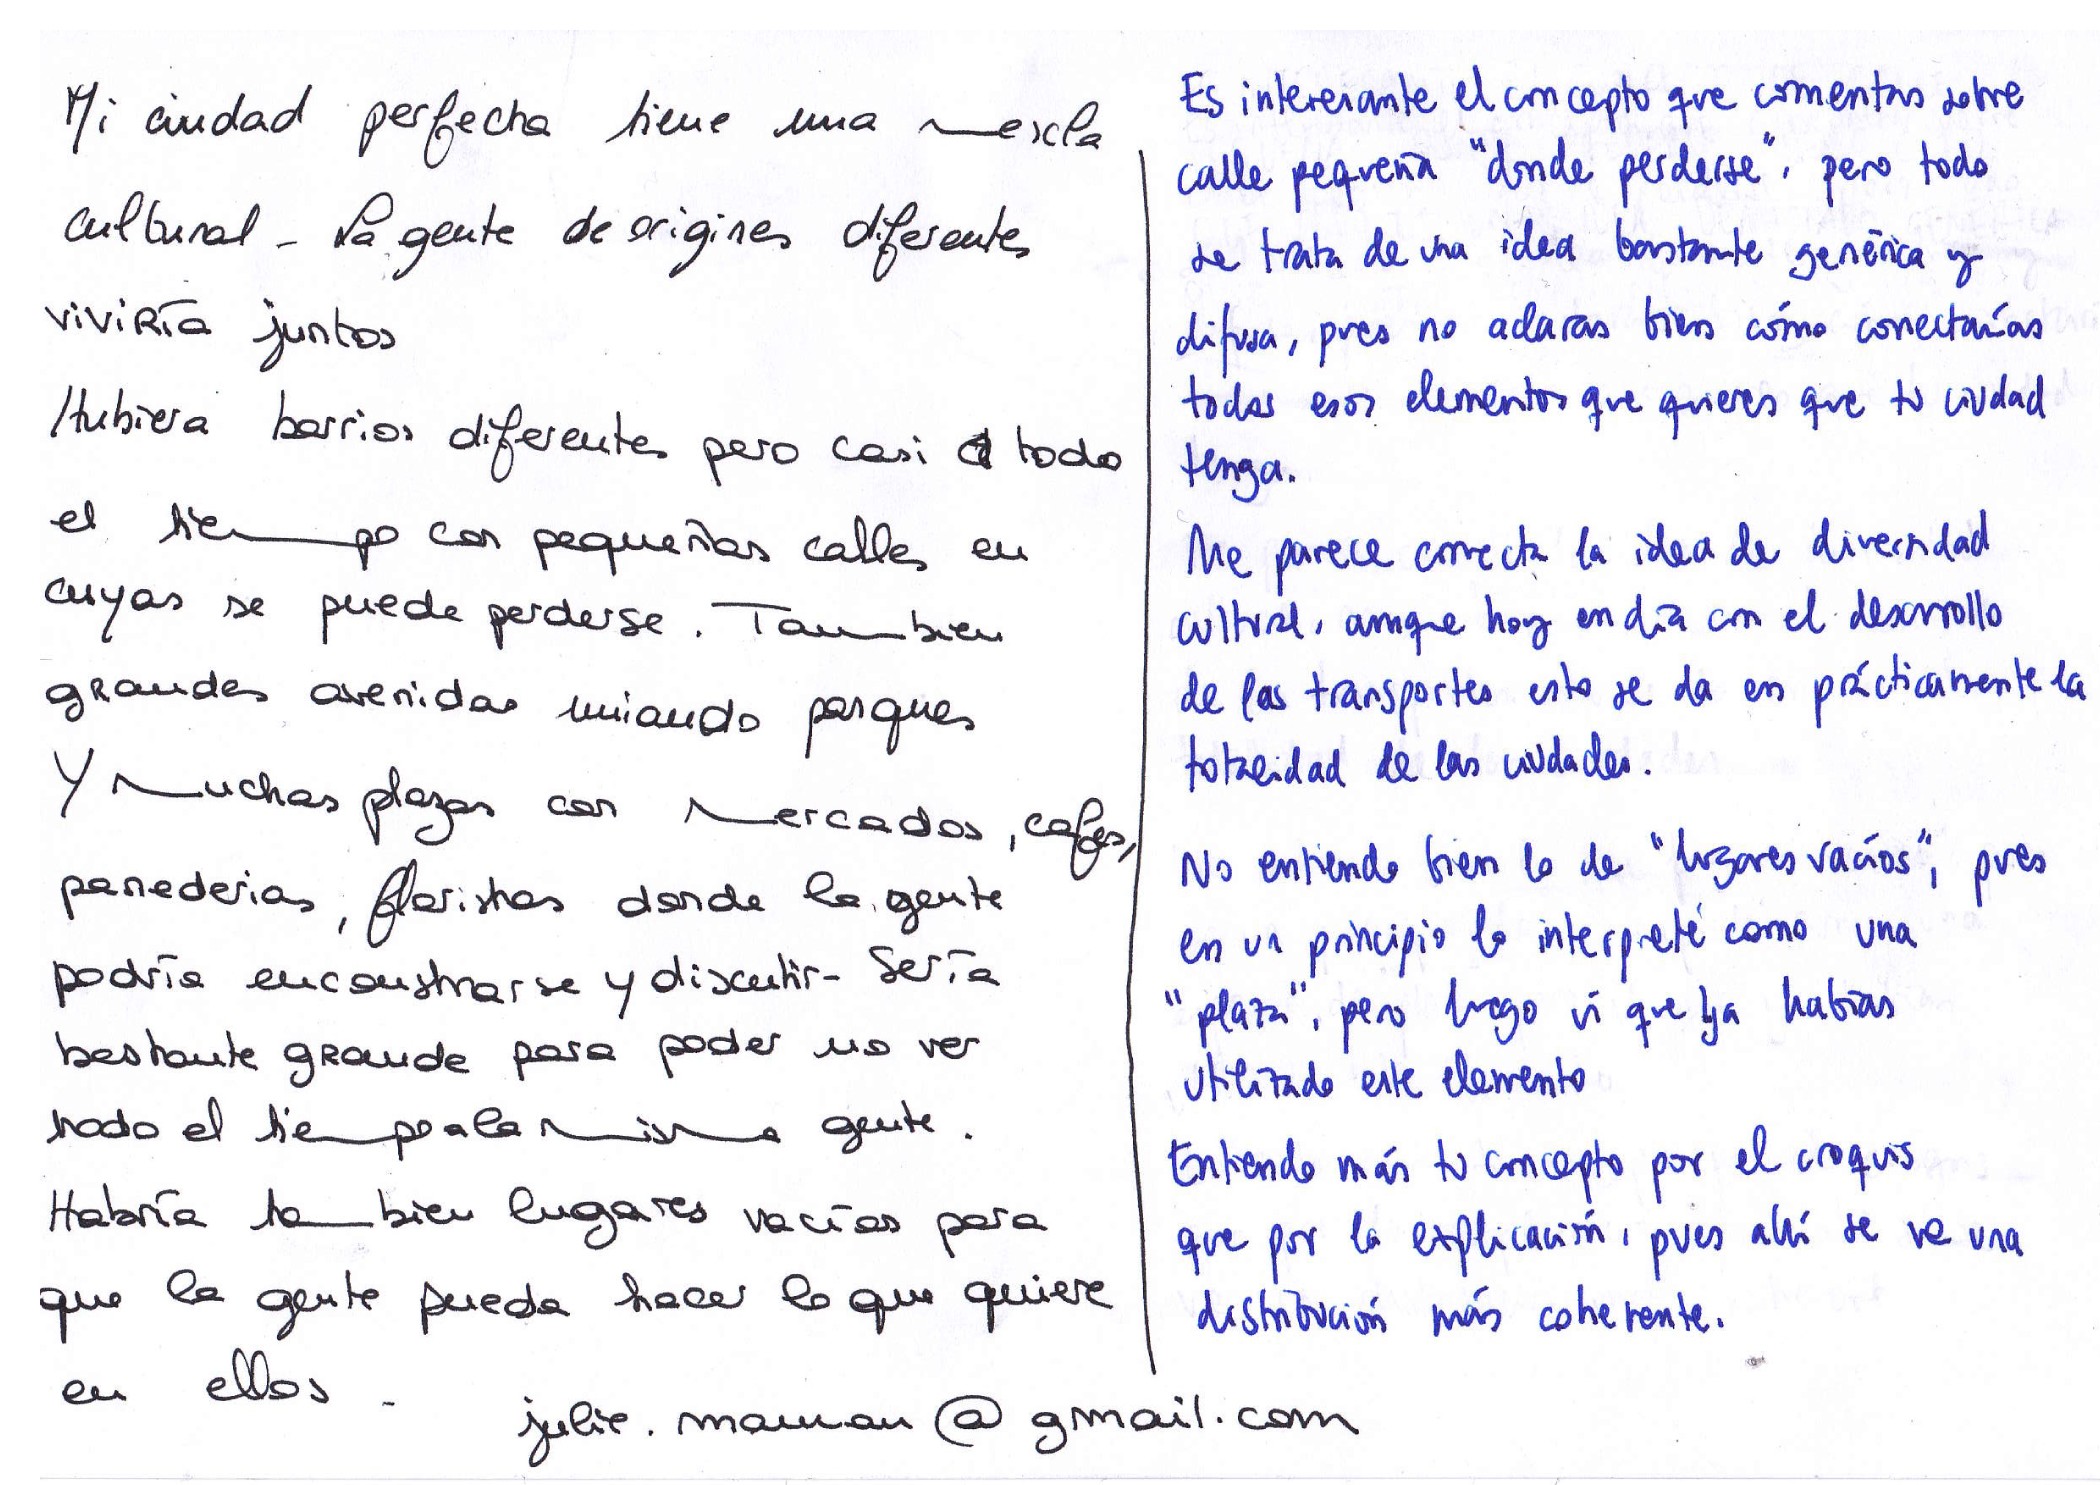 Mi ciudad perfecta tiene una mexcla
cultural - La gente de origines diferentes
viviría juntos
Hubiera barrios diferentes pero casi todo
el tiempo con pequeñas calles en
cuyas se puede perderse. Tambien
grandes avenidas uniando parques
Y muchas plazas con mercados, cafes,
panederias, floristas donde la gente
podría enconstrarse y discutir - Sería
bastante grande para poder no ver
todo el tiempo a la misma gente.
Habría tambien lugares vacíos para
que la gente pueda hacer lo que quiere
en ellos -
julie.maman@gmail.com
Es interesante el concepto que comentas sobre
calle pequeña "donde perderse", pero todo
se trata de una idea bastante genérica y
difusa, pues no aclaras bien cómo conectarías
todos esos elementos que quieres que tu ciudad
tenga.
Me parece correcta la idea de diversidad
cultural, aunque hoy en día con el desarrollo
de los transportes esto se da en prácticamente la
totalidad de las ciudades.
No entiendo bien lo de "lugares vacíos", pues
en un principio lo interpreté como una
"plaza", pero luego vi que ya habías
utilizado este elemento
Entiendo más tu concepto por el croquis
que por la explicación, pues allí se ve una
distribución más coherente.